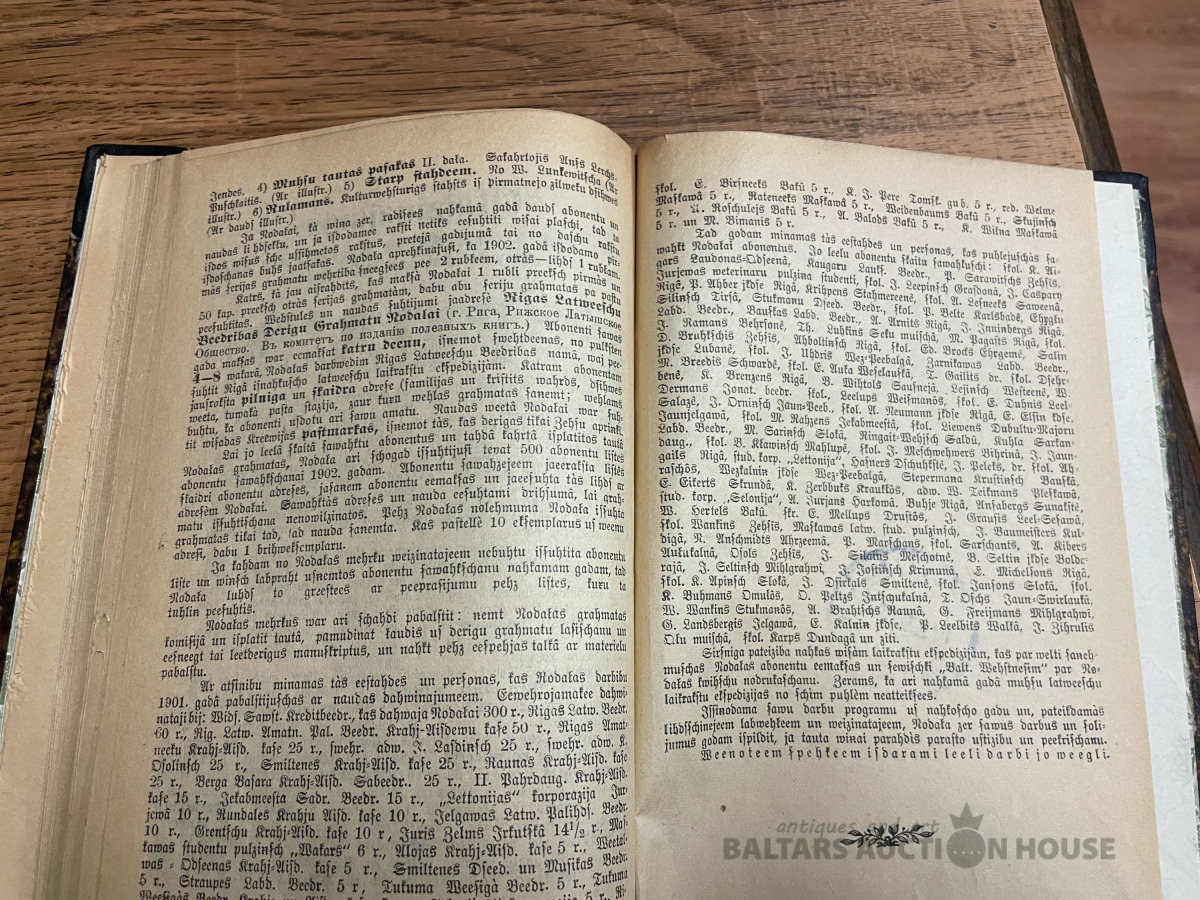 Jendes. 4) Muhsu tautas pasakas II. daļa. Sakahrtojis Anss Lerchs-
Puschkaitis. (Ar illustr.) 5) Starp stahdeem. No W. Lunkewitscha (Ar
illustr.) 6) Rulamans. Kulturwehsturigs stahsts is pirmatnejo zilweku dsihwes
(Ar daudj illustr.)
Ja Nodaļai, kà wiņa zer, radisees nahkamâ gadâ daudj abonentu un
naudas lihdseklu, un ja isdodamee raksti netiks eesuhtiti wisai plaschi, tad ta
isdos wisus sche usfihmetos rakstus, pretejâ gadijumâ tai no daschu rakstu
isdoschanas buhs jaatsakas. Nodaļa aprehķinajusi, ka 1902. gadâ isdodamo pir-
màs serijas grahmatu wehrtiba sneegsees pee 2 rubļeem, otràs—lihds 1 rubļam.
Katrs, kà jau aisrahdits, kas maksà Nodaļai 1 rubli preeksch pirmàs un
50 kap. preeksch otràs serijas grahmatàm, dabu abu seriju grahmatas pa pastu
peesuhtitas. Wehstules un naudas suhtijumi jaadresè Rigas Latweeschu
Beedribas Derigu Grahmatu Nodaļai (г. Рига, Рижское Латышское
Общество. Въ комитетъ по изданію полезныхъ книгъ.) Abonenti sawas
gada maksas war eemaksat katru deenu, isņemot swehtdeenas, no pulksten
4—8 wakarâ, Nodaļas darbwedim Rigas Latweeschu Beedribas namâ, waj pee-
suhtit Rigâ isnahkuscho latweeschu laikrakstu ekspedizijàm. Katram abonentam
jausroksta pilniga un skaidra adrese (familijas un kristits wahrds, dsihwes
weeta, tuwakà pasta stazija, zaur kuru wehlas grahmatas saņemt; wehlams
buhtu, ka abonenti usdotu ari sawu amatu. Naudas weetâ Nodaļai war suh-
tit wisadas Kreewijas pastmarkas, isņemot tàs, kas derigas tikai Zehsu apriņki.
Lai jo leelâ skaitâ sawahktu abonentus un tahdâ kahrtâ isplatitos tautâ
Nodaļas grahmatas, Nodaļa ari schogad issuhtijusi tepat 500 abonentu listes
abonentu sawahkschanai 1902. gadam. Abonentu sawahzejeem jaeeraksta listès
skaidri abonentu adreses, jasaņem abonentu eemaksas un jaeesuhta tàs lihds ar
adresèm Nodaļai. Sawahktàs adreses un nauda eesuhtami drihsumâ, lai grah-
matu issuhtischana nenowilzinatos. Pehz Nodaļas nolehmuma Nodaļa issuhta
grahmatas tikai tad, kad nauda saņemta. Kas pastellè 10 eksemplarus us weenu
adresi, dabu 1 brihweksemplaru.
Ja kahdam no Nodaļas mehrķu weizinatajeem nebuhtu issuhtita abonentu
liste un winsch labpraht usņemtos abonentu sawahkschanu nahkamam gadam, tad
Nodaļa luhds to greestees ar peeprasijumu pehz listes, kuru ta
tuhlin peesuhtis.
Nodaļas mehrķus war ari schahdi pabalstit: ņemt Nodaļas grahmatas
komisijâ un isplatit tautâ, pamudinat ļaudis us derigu grahmatu lasischanu un
eesneegt tai leetderigus manuskriptus, un nahkt pehz eespehjas talkâ ar materielu
pabalstu.
Ar atsinibu minamas tàs eestahdes un personas, kas Nodaļas darbibu
1901. gadâ pabalstijuschas ar naudas dahwinajumeem. Eewehrojamakee dahwi-
nataji bij: Wids. Sawst. Kreditbeedr., kas dahwaja Nodaļai 300 r., Rigas Latw. Beedr.
60 r., Rig. Latw. Amatn. Pal. Beedr. Krahj-Aisdewu kase 50 r., Rigas Amat-
neeku Krahj-Aisd. kase 25 r., swehr. adw. J. Lasdiņsch 25 r., swehr. adw. K.
Osoliņsch 25 r., Smiltenes Krahj-Aisd. kase 25 r., Raunas Krahj-Aisd. kase
25 r., Berga Basara Krahj-Aisd. Sabeedr.. 25 r., II. Pahrdaug. Krahj-Aisd.
kase 15 r., Jekabmeesta Sadr. Beedr. 15 r., „Lettonijas" korporazija Jur-
jewâ 10 r., Rundales Krahju Aisd. kase 10 r., Jelgawas Latw. Palihds. Beedr.
10 r., Grentschu Krahj-Aisd. kase 10 r, Juris Zelms Irkutskâ 14½ r., Mas-
kawas studentu pulziņsch „Wakars" 6 r., Alojas Krahj-Aisd. kase 5 r., Weetal-
was - Odseenas Krahj-Aisd. kase 5 r., Smiltenes Dseed. un Musikas Beedr.
5 r., Straupes Labd. Beedr. 5 r, Tukuma Weesigà Beedr. 5 r., Tukuma
skol. E. Birsneeks Bakû 5 r., K. J. Pere Tomsk. gub. 5 r., red. Welme
Maskawâ 5 r., Rateneeks Maskawâ 5 r., Weidenbaums Bakû 5 r., Skujiņsch
5 r., A. Roschulejs Bakû 5 r., A. Balods Bakû 5 r., K. Wilna Maskawâ
5 r. un M. Bimanis 5 r.
Tad godam minamas tàs eestahdes un personas, kas puhlejuschàs sa-
wahkt Nodaļai abonentus. Jo leelu abonentu skaitu sawahkuschi: skol. K. Ai-
gars Laudonas-Odseenâ, Kaugaru Lauks. Beedr., P. Sarawitschs Zehsis,
Jurjewas weterinaru pulziņa studenti, skol. J. Leepiņsch Grasdonâ, J. Caspary
Rigâ, P. Ahber jkdse Rigâ, Krihpens Stahmerreenê, skol. A. Lesneeks Saweenâ,
Siliņsch Tirsâ, Stukmaņu Dseed. Beedr., skol. P. Belte Karlsbadê, Ehrgļu
Labd. Beedr., Bauskas Labd. Beedr., A. Arnits Rigâ, J. Inninbergs Rigâ,
J. Ramans Behrsonê, Th. Luhkiņs Seku muischâ, M. Pagasts Rigâ, skol.
D. Bruhkschis Zehsis, Ahboltiņsch Rigâ, skol. Ed. Brocks Ehrgemê, Saliņ
jkdse Lubanê, skol. J. Uhdris Wez-Peebalgâ, Zarnikawas Labd. Beedr.,
M. Breedis Schwardê, skol. E. Auka Weselauskâ, T. Gailits dr. skol. Dsehr-
benê, K. Brenzens Rigâ, B. Wihtols Sausnejâ, Lejiņsch Westeenê, W.
Dermans Jonat. beedr. skol., Leelups Weismanôs, skol. E. Duhnis Leel-
Salazê, J. Ormiņsch Jaun-Peeb., skol. A. Neumann jkdse Rigâ, E. Elsin kdse,
Jaunjelgawâ, skol. M. Rahzens Jekabmeestâ, skol. Liewens Dubultu-Majoru
Labd. Beedr., M. Sariņsch Slokâ, Ringait-Wehjsch Saldû, Kuhla Sarkan-
daug., skol. B. Klawiņsch Mahlupê, skol. J. Meschwehwers Bihriņâ, J. Jaun-
gails Rigâ, stud. korp. „Lettonija", Hasners Dschuhkstê, J. Peleks, dr. skol. Ah-
raschôs, Wezkalniņ jkdse Wez-Peebalgâ, Stepermaņa Krustiņsch Bauskâ,
E. Eikerts Skrundâ, K. Zerbbuks Krauklôs, adw. W. Teikmans Pleskawâ,
stud. korp. „Selonija", A. Jurjans Harkowâ, Buhje Rigâ, Ansabergs Sunakstê,
W. Hertels Bakû, skr. E. Mellups Drustôs, J. Grausis Leel-Sesawâ,
skol. Wankins Zehsis, Maskawas latw. stud. pulziņsch, J. Baumeisters Kul-
digâ, N. Anschmidts Ahrzeemâ, P. Marschans, skol. Sarschants, A. Kibers
Aukukalnâ, Osols Zehsis, J. Silains Meschotnê, B. Seltin jkdse Bolde-
rajâ, J. Seltiņsch Mihlgrahwi, J. Jostiņsch Krimunâ, E. Michelsons Rigâ,
skol. K. Apiņsch Slokâ, J. Dsirkals Smiltenê, skol. Jansons Slokâ, skol.
K. Buhmans Omulôs, O. Peltzs Intschukalnâ, T. Oschs Jaun-Swirlaukâ,
W. Wankins Stukmanôs, A. Brahtschs Raunâ, G. Freijmans Mihlgrahwi,
G. Landsbergis Jelgawâ, E. Kalniņ jkdse, P. Leelbits Walkâ, J. Zihrulis
Oļu muischâ, skol. Karps Dundagâ un ziti.
Sirsniga pateiziba nahkas wisàm laikrakstu ekspedizijàm, kas par welti saņeh-
muschas Nodaļas abonentu eemaksas un sewischki „Balt. Wehstnesim" par No-
daļas kwihschu nodrukaschanu. Zerams, ka ari nahkamâ gadâ muhsu latweeschu
laikrakstu ekspedizijas no schim puhlèm neatteiksees.
Issinodama sawu darbu programu us nahkoscho gadu un, pateikdamàs
lihdsschinejeem labwehļeem un weizinatajeem, Nodaļa zer sawus darbus un soli-
jumus godam ispildit, ja tauta winai parahdis parasto ustizibu un peekrischanu.
Weenoteem spehkeem isdarami leeli darbi jo weegli.
antiques and art
BALTARS AUCTION HOUSE